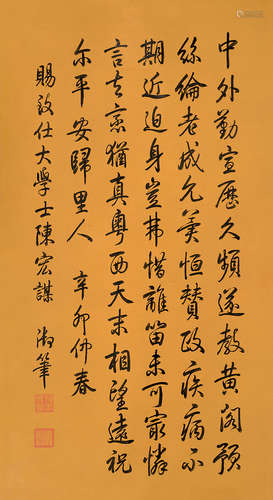 中外勤宣歷久頻遂教黃閣預
絲綸老成允羙恒贊政疾病不
期近迫身豈弗惜離留未可冣憐
言去意猶真粵西天末相望遠祝
尔平安歸里人 辛卯仲春
賜致仕大學士陳宏謀 御筆